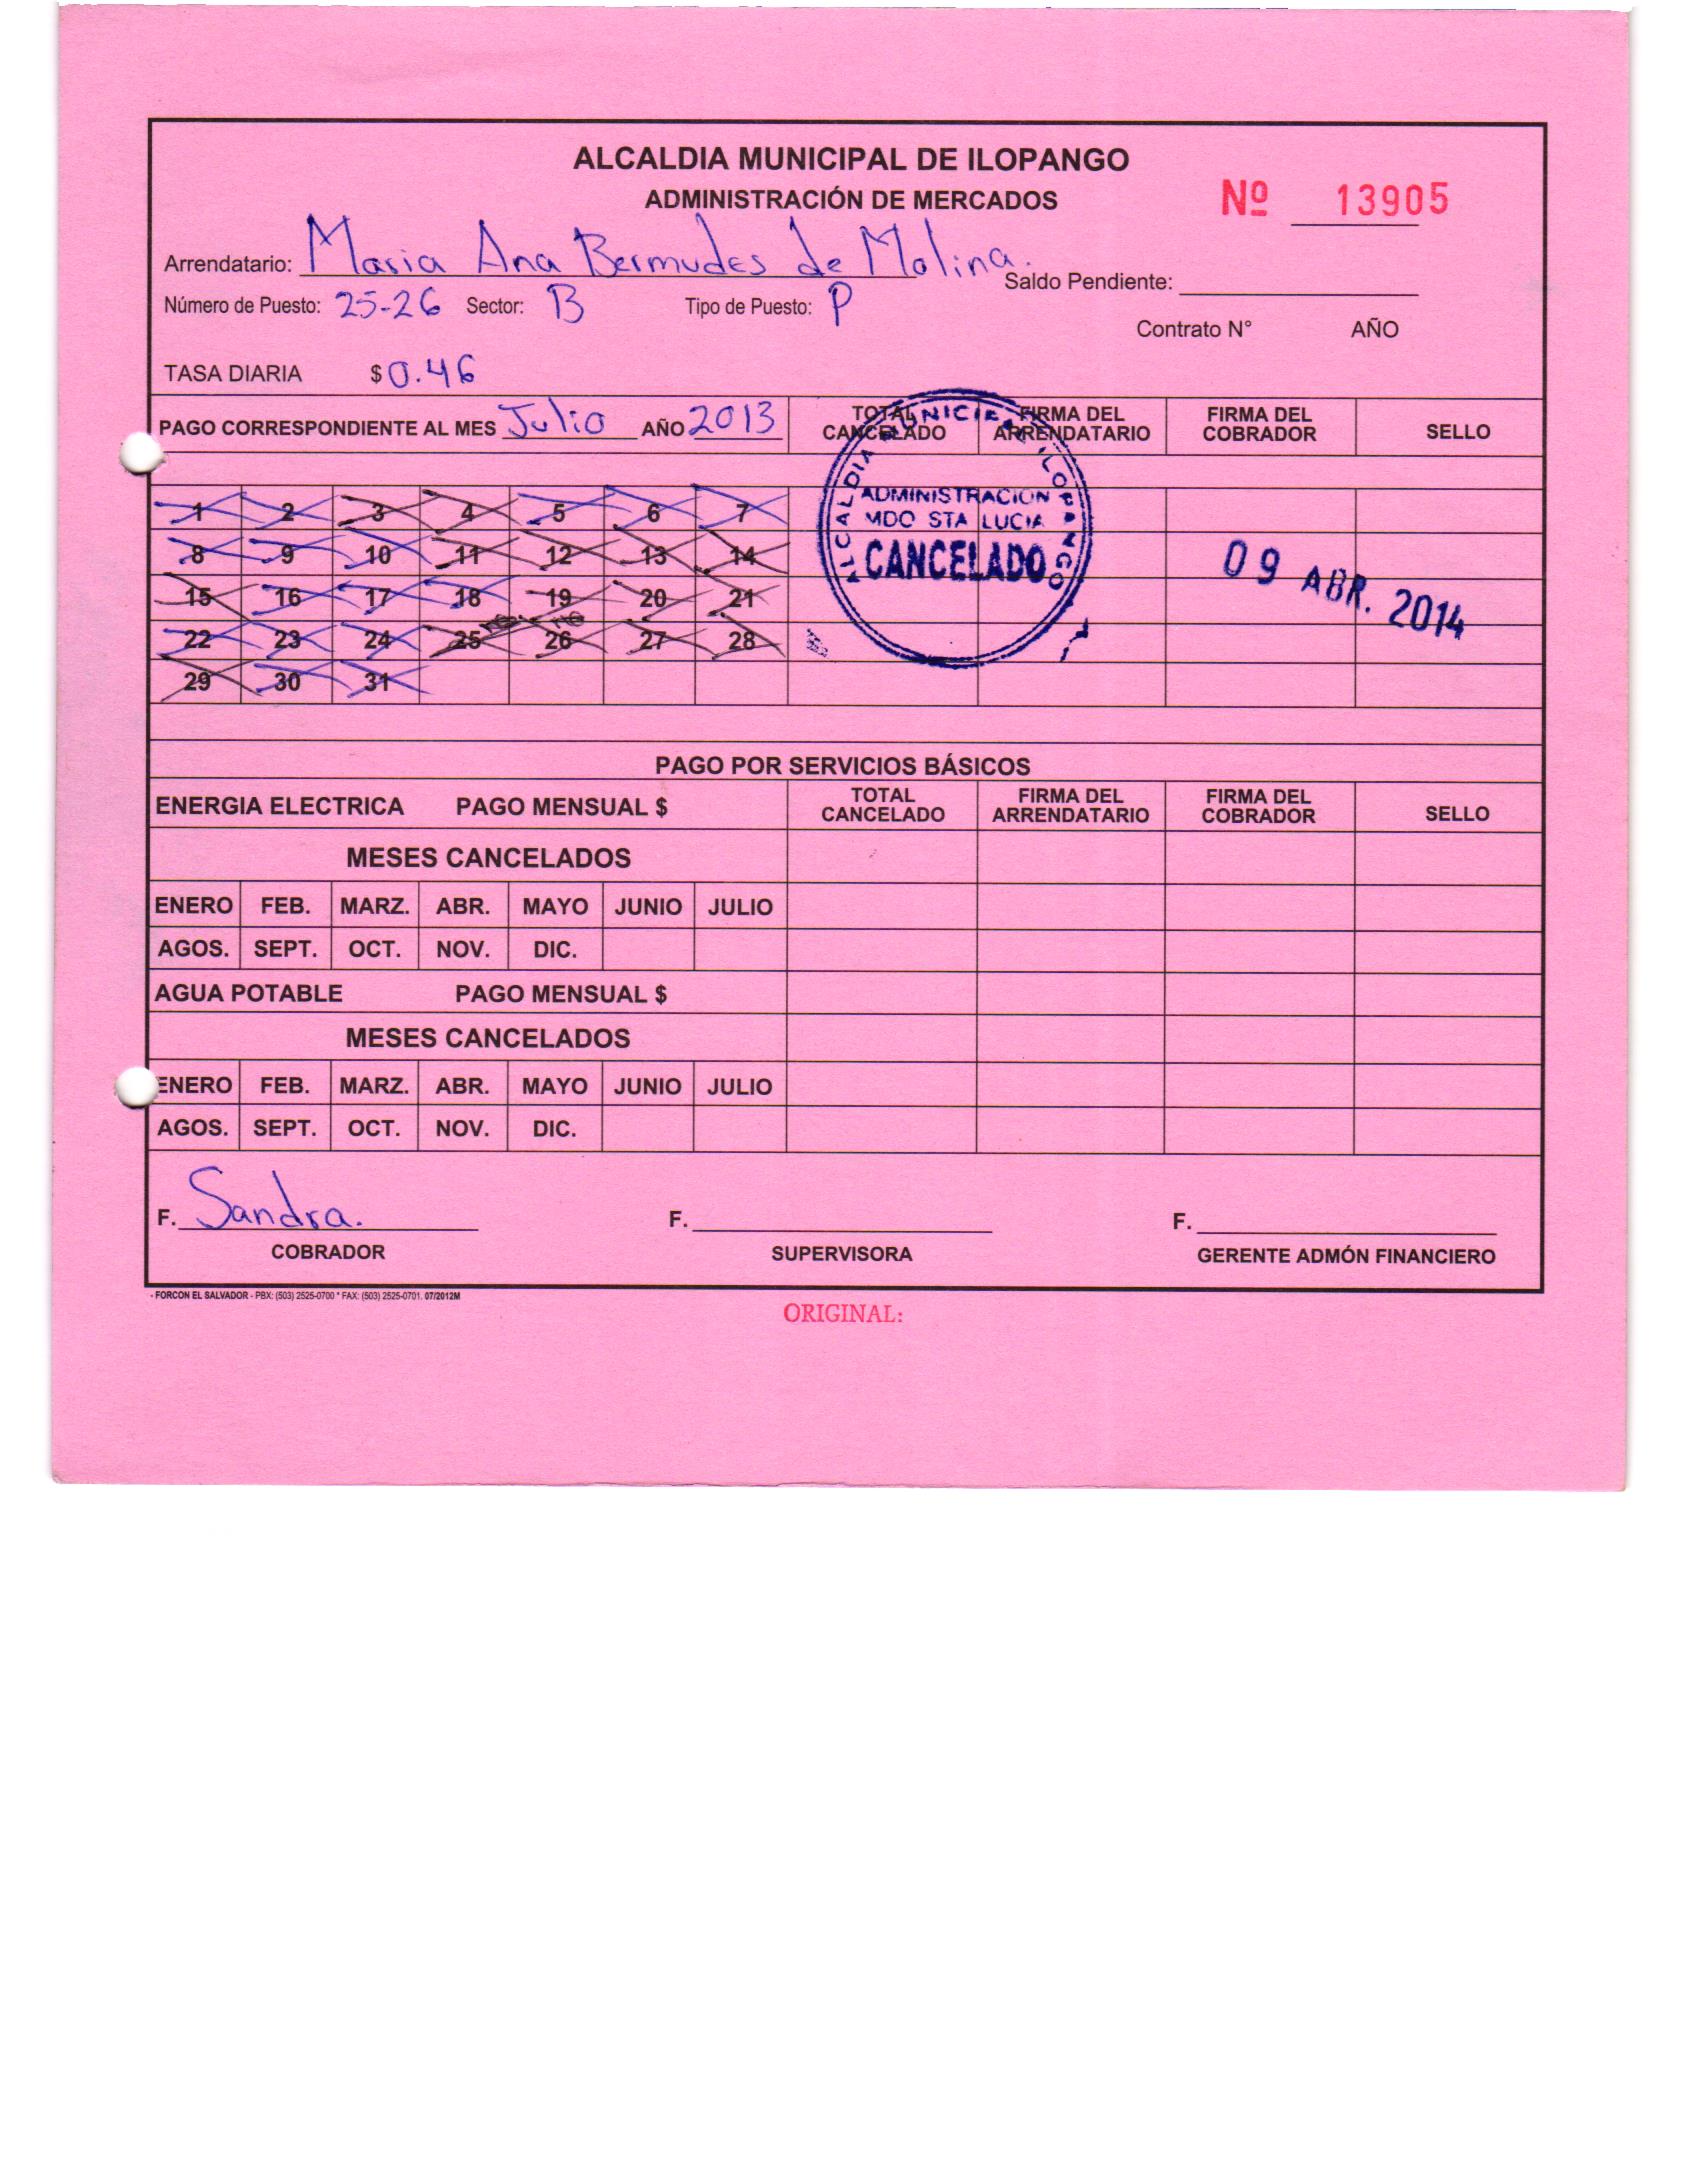 ALCALDIA MUNICIPAL DE ILOPANGO
ADMINISTRACIÓN DE MERCADOS
Nº 13905
Arrendatario: Maria Ana Bermudes de Molina.
Saldo Pendiente:
Número de Puesto: 25-26 Sector: B Tipo de Puesto: P
Contrato N° AÑO
TASA DIARIA $ 0.46
PAGO CORRESPONDIENTE AL MES Julio AÑO 2013 TOTAL CANCELADO FIRMA DEL ARRENDATARIO FIRMA DEL COBRADOR SELLO
1 2 3 4 5 6 7
8 9 10 11 12 13 14
15 16 17 18 19 20 21
22 23 24 25 26 27 28
29 30 31
ALCALDIA MUNICIPAL ILOPANGO
ADMINISTRACION
MDO STA LUCIA
CANCELADO
09 ABR. 2014
PAGO POR SERVICIOS BÁSICOS
ENERGIA ELECTRICA PAGO MENSUAL $ TOTAL CANCELADO FIRMA DEL ARRENDATARIO FIRMA DEL COBRADOR SELLO
MESES CANCELADOS
ENERO FEB. MARZ. ABR. MAYO JUNIO JULIO
AGOS. SEPT. OCT. NOV. DIC.
AGUA POTABLE PAGO MENSUAL $
MESES CANCELADOS
ENERO FEB. MARZ. ABR. MAYO JUNIO JULIO
AGOS. SEPT. OCT. NOV. DIC.
F. Sandra. F. F.
COBRADOR SUPERVISORA GERENTE ADMÓN FINANCIERO
- FORCON EL SALVADOR - PBX: (503) 2525-0700 * FAX: (503) 2525-0701. 07/2012M
ORIGINAL: